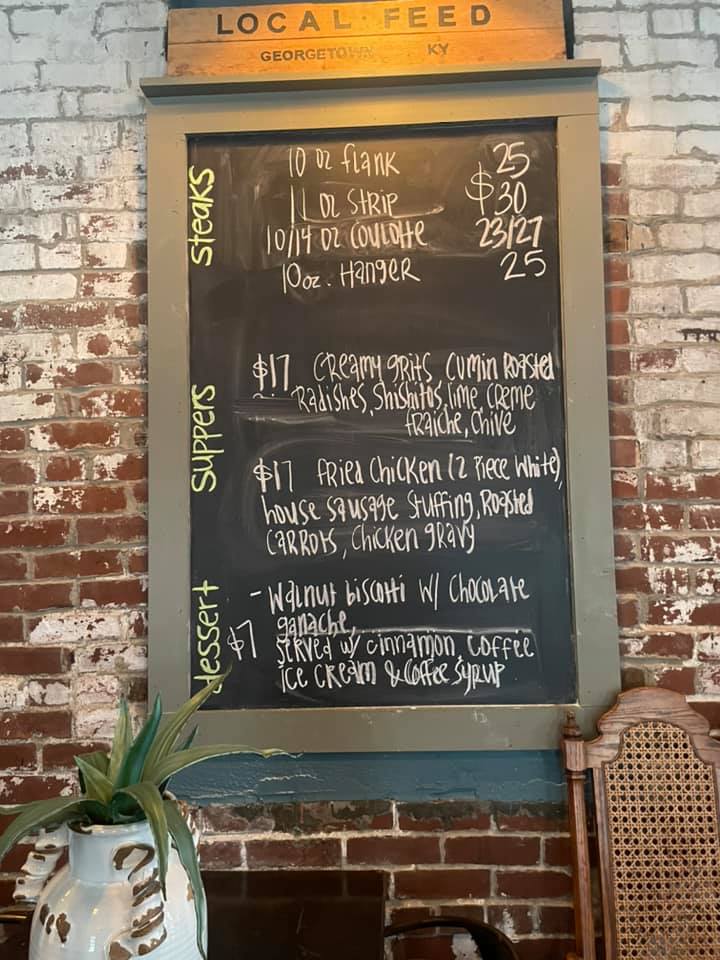 LOCAL FEED
GEORGETOWN KY
Steaks
10 oz flank 25
11 oz Strip $30
10/14 oz Coulotte 23/27
10oz. Hanger 25
Suppers
$17 Creamy grits Cumin Roasted
Radishes, Shishitos, lime, Creme
fraiche, Chive
$17 fried Chicken (2 Piece White),
house Sausage Stuffing, Roasted
Carrots, Chicken gravy
dessert
- Walnut biscotti w/ Chocolate
ganache,
$7 Served w/ cinnamon Coffee
ice cream & Coffee Syrup.